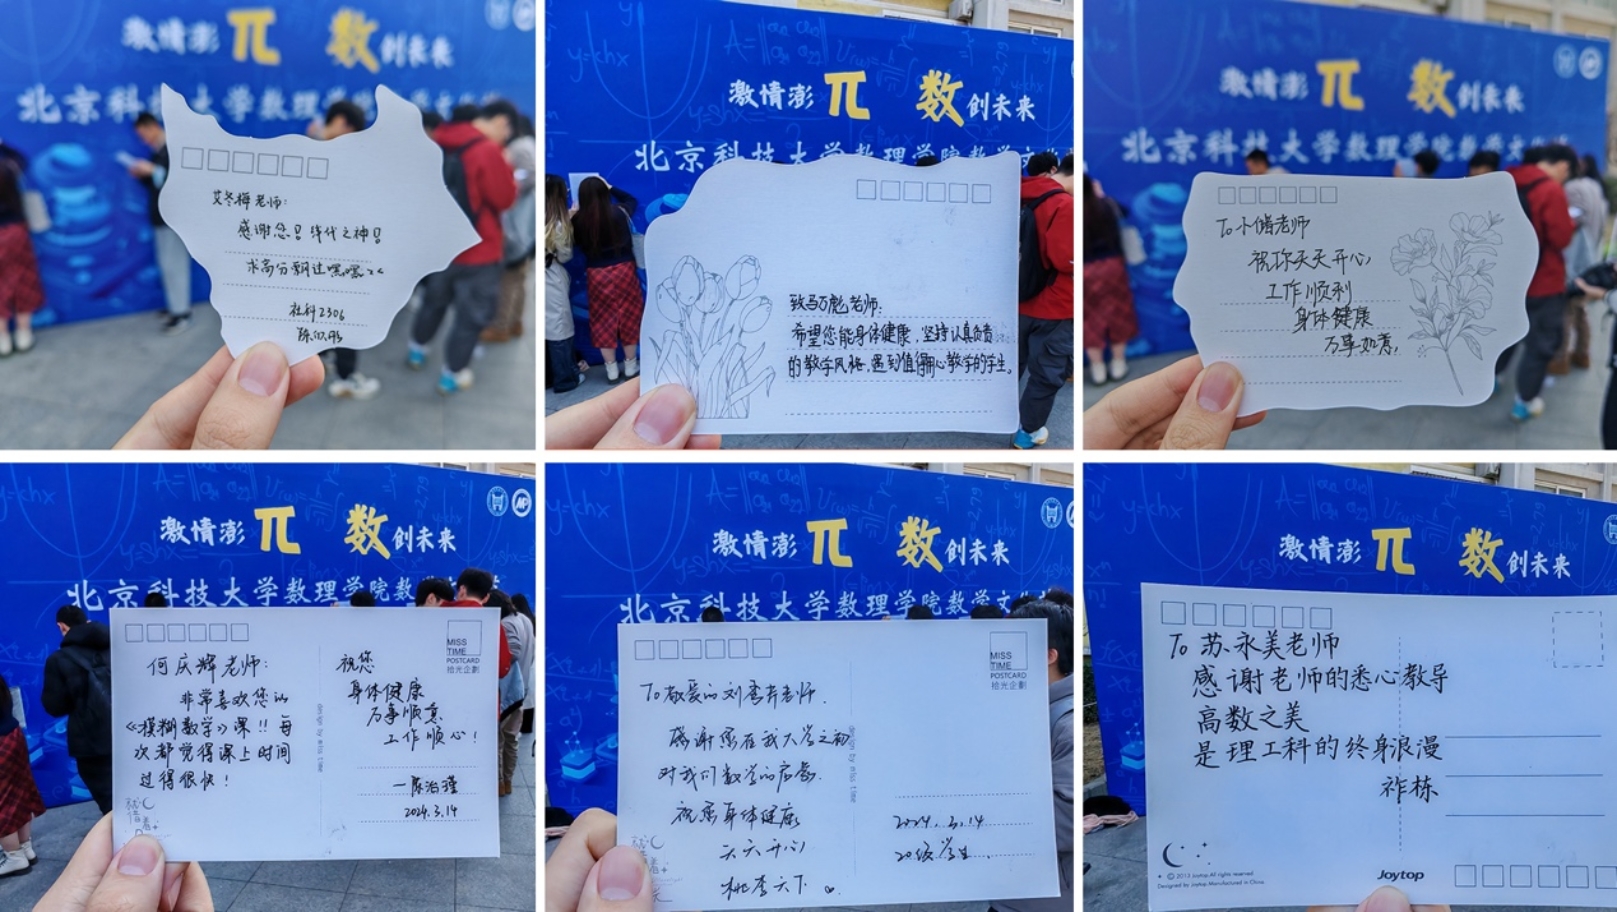 激情澎π 数创未来
北京科技大学数理学院数学文化
艾冬梅老师:
感谢您! 线代之神!
求高分飘过嘿嘿
社科2306
激情澎π 数创未来
北京科技大学数理学院数学文化
致马万彪老师:
希望您能身体健康,坚持认真负责
的教学风格,遇到值得用心教学的学生。
激情澎π 数创未来
北京科技大学数理学院数学文化
To 小储老师
祝你天天开心
工作顺利
身体健康
万事如意,
激情澎π 数创未来
北京科技大学数理学院数
何庆辉老师:
非常喜欢您的
《模糊数学》课!!每
次都觉得课上时间
过得很快!
祝您
身体健康
万事顺意
工作顺心!
2024.3.14
MISS
TIME
POSTCARD
拾光企劃
design by miss time
激情澎π 数创未来
北京科技大学数理学院数学文化
To 敬爱的刘老师.
感谢您在我大学之初
对我们数学的启蒙.
祝您身体健康
天天开心
桃李天下
2024.3.14
20级学生.
MISS
TIME
POSTCARD
拾光企劃
design by miss time
激情澎π 数创未来
To 苏永美老师
感谢老师的悉心教导
高数之美
是理工科的终身浪漫
祚栋
© 2013 Joytop.All rights reserved
Designed by Joytop.Manufactured in China.
Joytop